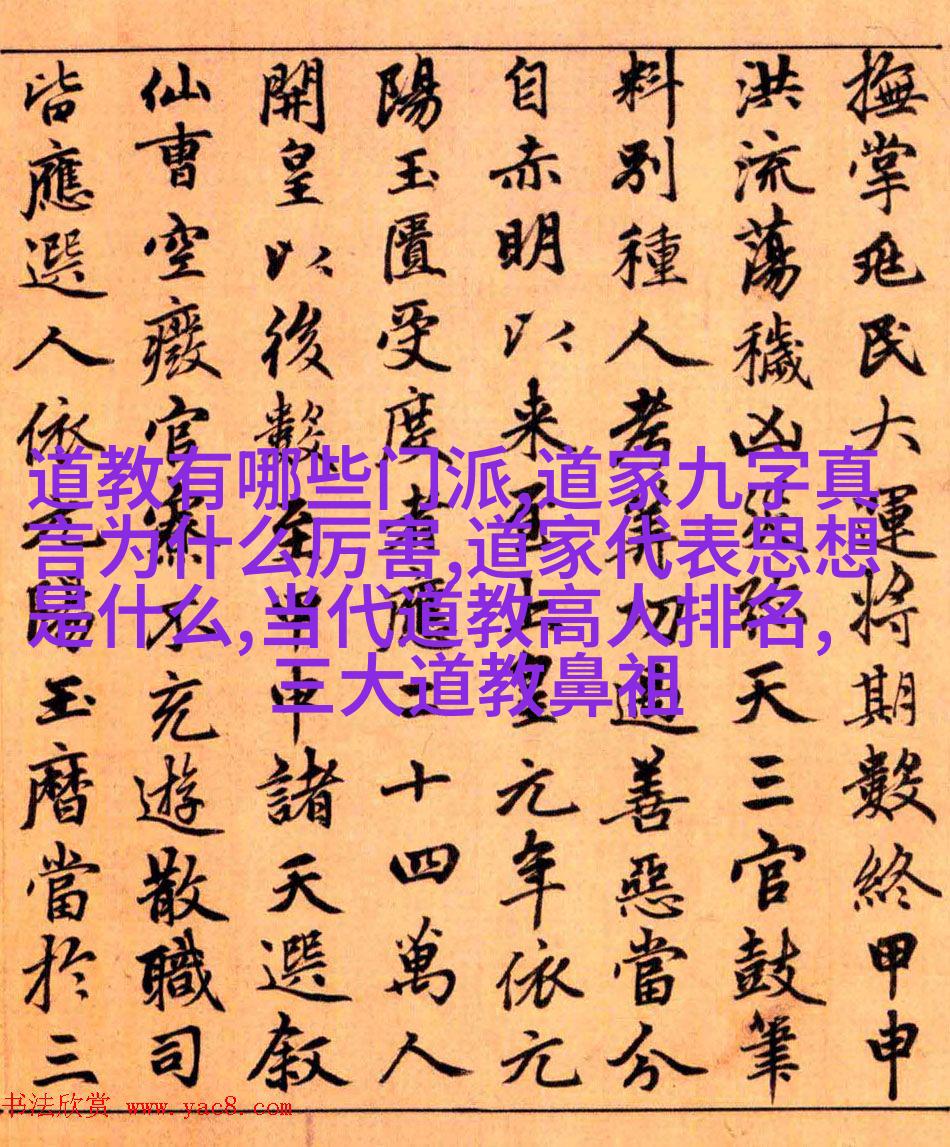 撫掌兆民大運將期數終甲申
洪流蕩穢凶天三官鼓筆
料別種人考善惡當分
自赤明以来元年依元
陽玉匱受度十四萬人
開皇以後數諸天選敘
仙曹空癈官充遊散職司
皆應選人依玉曆當於三
道教有哪些门派,道家九字真
言为什么厉害,道家代表思想
是什么,当代道教高人排名,
三大道教鼻祖
书法欣赏 www.yac8.com